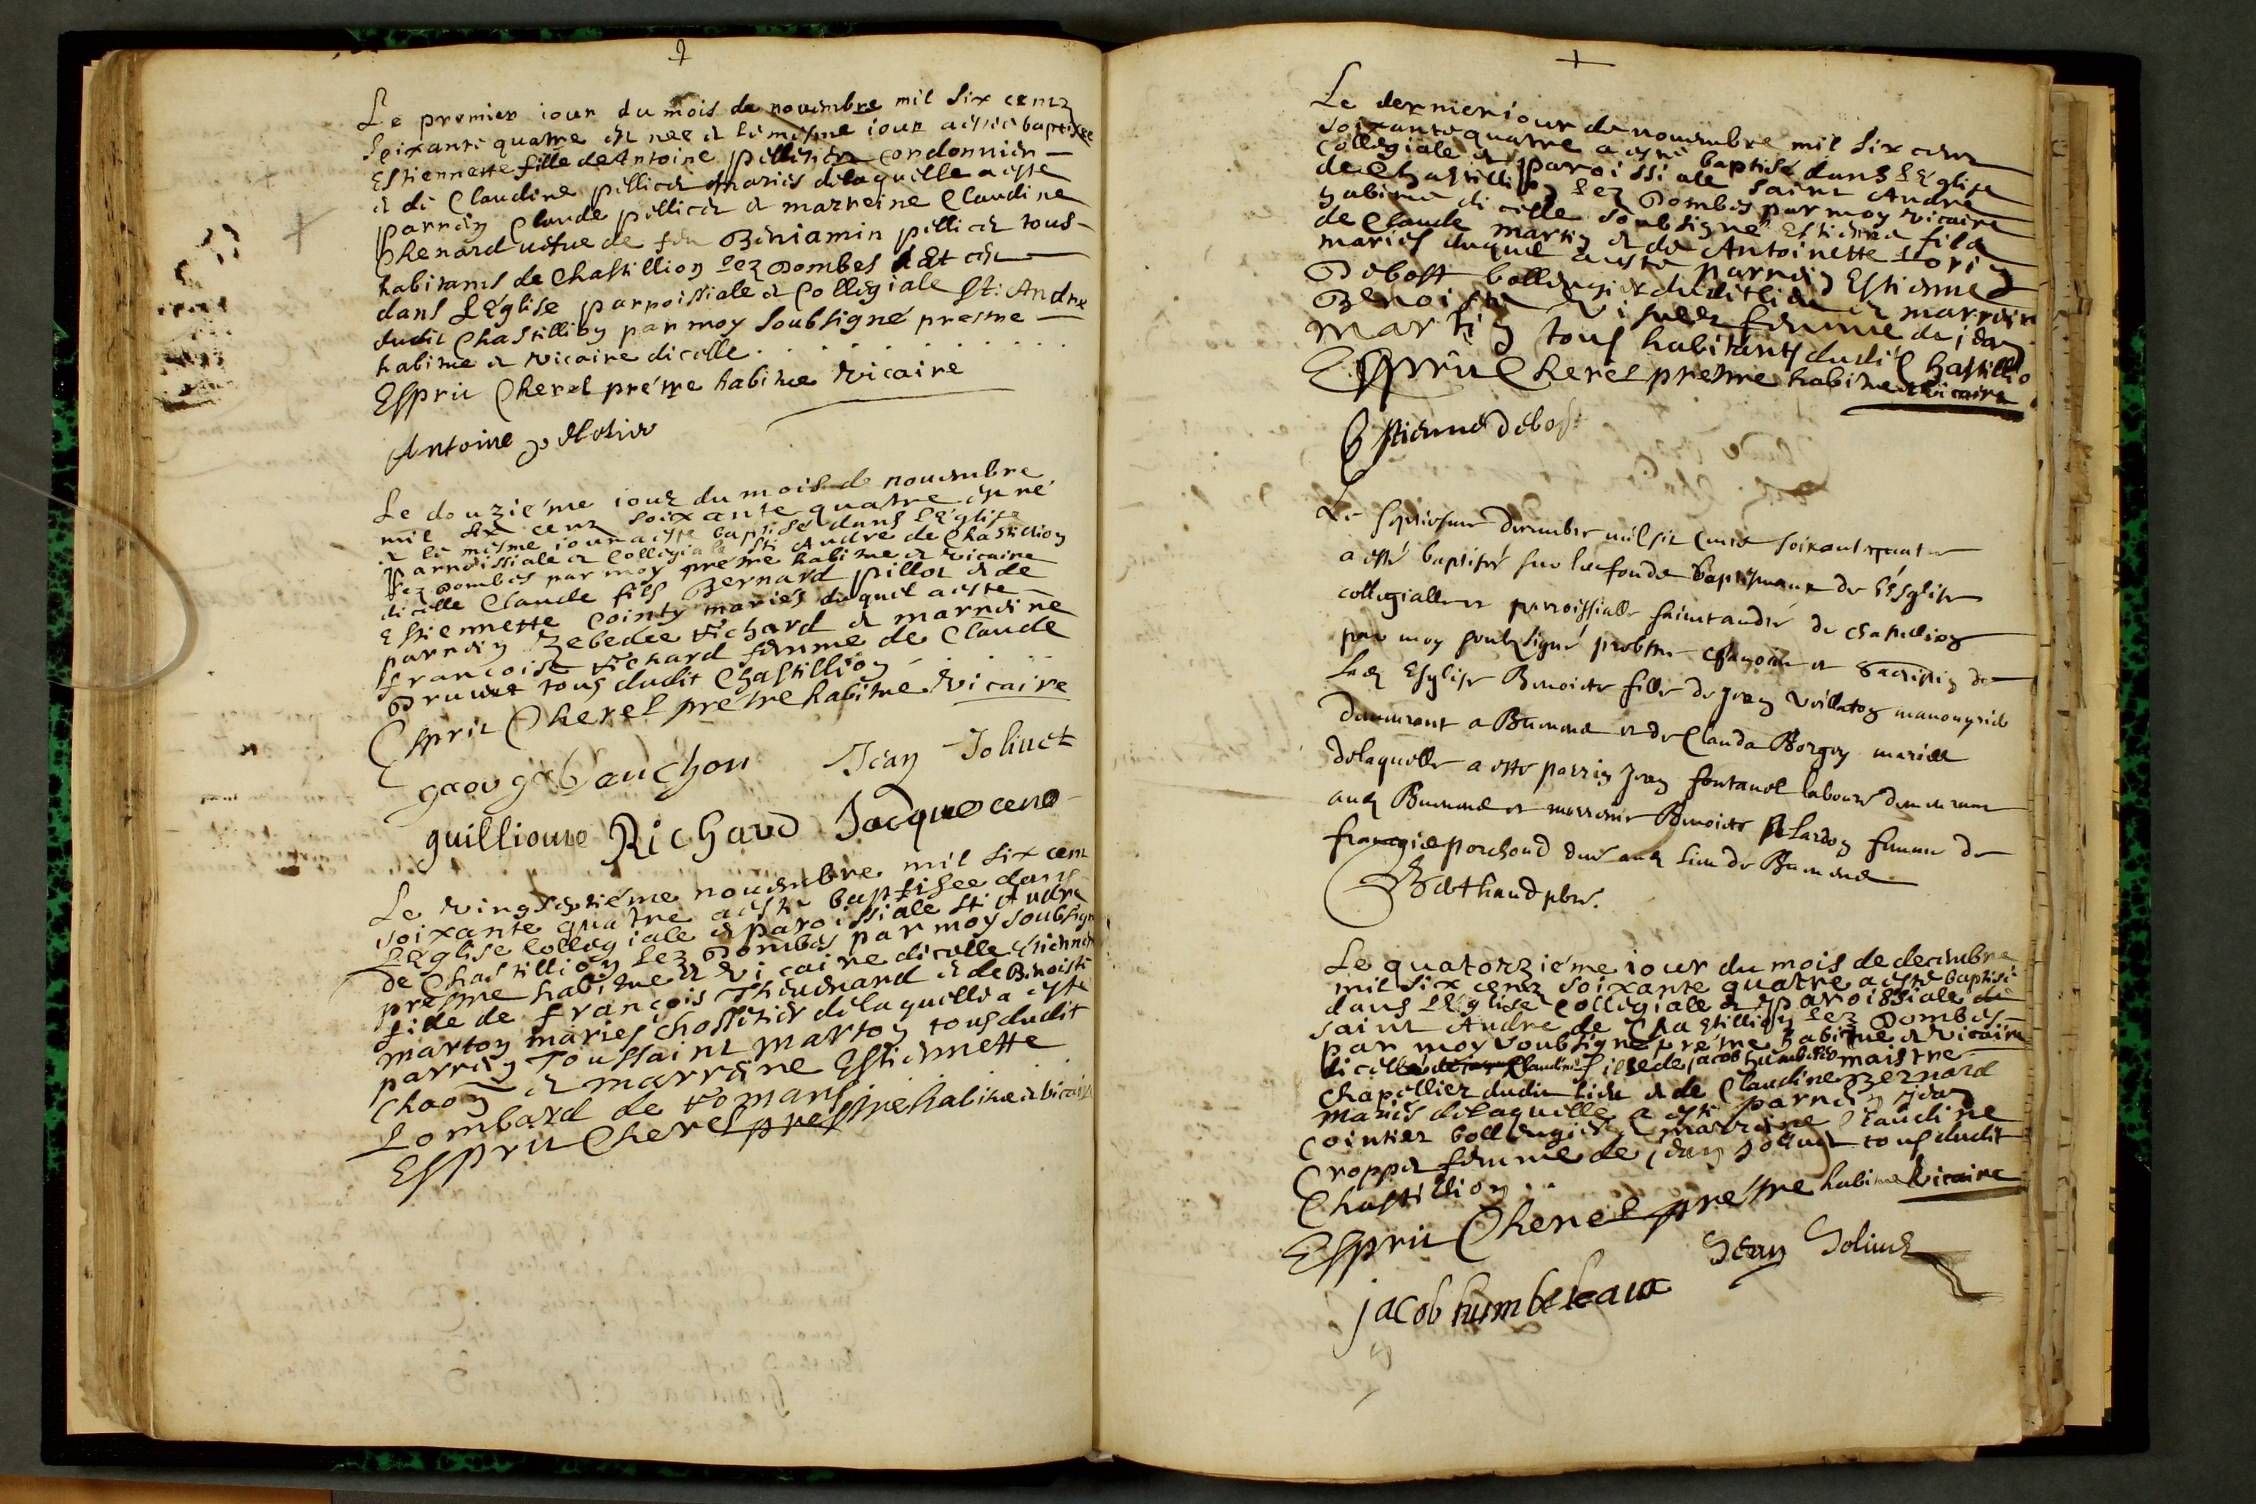 Le premier iour du mois de nouembre mil Six cens
Soixante quatre est nee et le mesme iour a esté baptisée
Estiennette fille de Antoine pillicier cordonnier
et de Claudine pillicet mariés de laquelle a esté
parrain Claude pillicet et marreine Claudine
Chenard uefue de feu Beniamin pillicet tous
habitans de Chastillion lez Dombes
dans LEglise parroissiale et Collegiale St. Andre
dudit Chastillion par moy Soubsigné prestre
habitué et vicaire dicelle
Esprit Cherel prêtre habitué vicaire
Antoine
Le douziéme iour du mois de nouembre
mil six cent soixante quatre est né
et le mesme iour a esté baptisé dans LEglise
Parroissiale et Collegiale St. Andre de Chastillion
lez Dombes par moy prestre habitué et vicaire
dicelle Claude fils Bernard pillot et de
Estiennette Cointy mariés duquel a esté
parrain Zebedee Richard et marreine
francoise Richard femme de Claude
tous dudit Chastillion
Esprit Cherel prêtre habitué vicaire
george Jean Joliuet
guilliome Richard Jacque
Le vingt septiéme nouembre mil six cent
soixante quatre a esté baptisée dans
LEglise Collegiale et paroissiale St. Andre
de Chastillion lez Dombes par moy soubsigné
prestre habitué et vicaire dicelle
fille de françois et de Benoiste
marton mariés de laquelle a esté
parrain Toussaint marton tous dudit
et marreine Estiennette
Lombard de Romans
Esprit Cherel prestre habitué et vicaire
Le dernier iour de nouembre mil six cent
soixante quatre a esté baptisé dans LEglise
Collegiale et paroissiale saint Andre
de Chastillion lez Dombes par moy vicaire
habitué dicelle soubsigné Estienne fils
de Claude martin et de Antoinette
mariés duquel a esté parrain Estienne
Debost bollengier dudit lieu et marreine
Benoiste femme de jean
martin tous habitants dudit Chastillion
Esprit Cherel prestre habitué et vicaire
Estienne debost
Le septiesme decembre mil six cents soixante quatre
a esté baptisée sur les fonds baptismaux de l'Esglise
collegialle et parroissialle saint andré de chastillion
par moy soubsigné prebstre chanoine et sacristain de
lad Esglise Benoicte fille de Jean
demeurant a et de Clauda mariés
delaquelle a esté parrin Jean fontanel laboureur demeurant
aud et marreine Benoicte femme de
dud lieu de
Bethaud pbre.
Le quatorziéme iour du mois de decembre
mil six cens soixante quatre a esté baptisée
dans LEglise Collegiale et paroissiale de
saint Andre de Chastillion lez Dombes
par moy soubsigné prétre habitué et vicaire
dicelle Claudine fille de jacob humbeleau maistre
chapellier dudit lieu et de Claudine Bernard
mariés de laquelle a esté parrain jean
Cointier bollengier et marraine Claudine
femme de jean Joliuet tous dudit
Chastillion
Esprit Cherel prestre habitué vicaire
Jean Joliuet
jacob humbeleaux